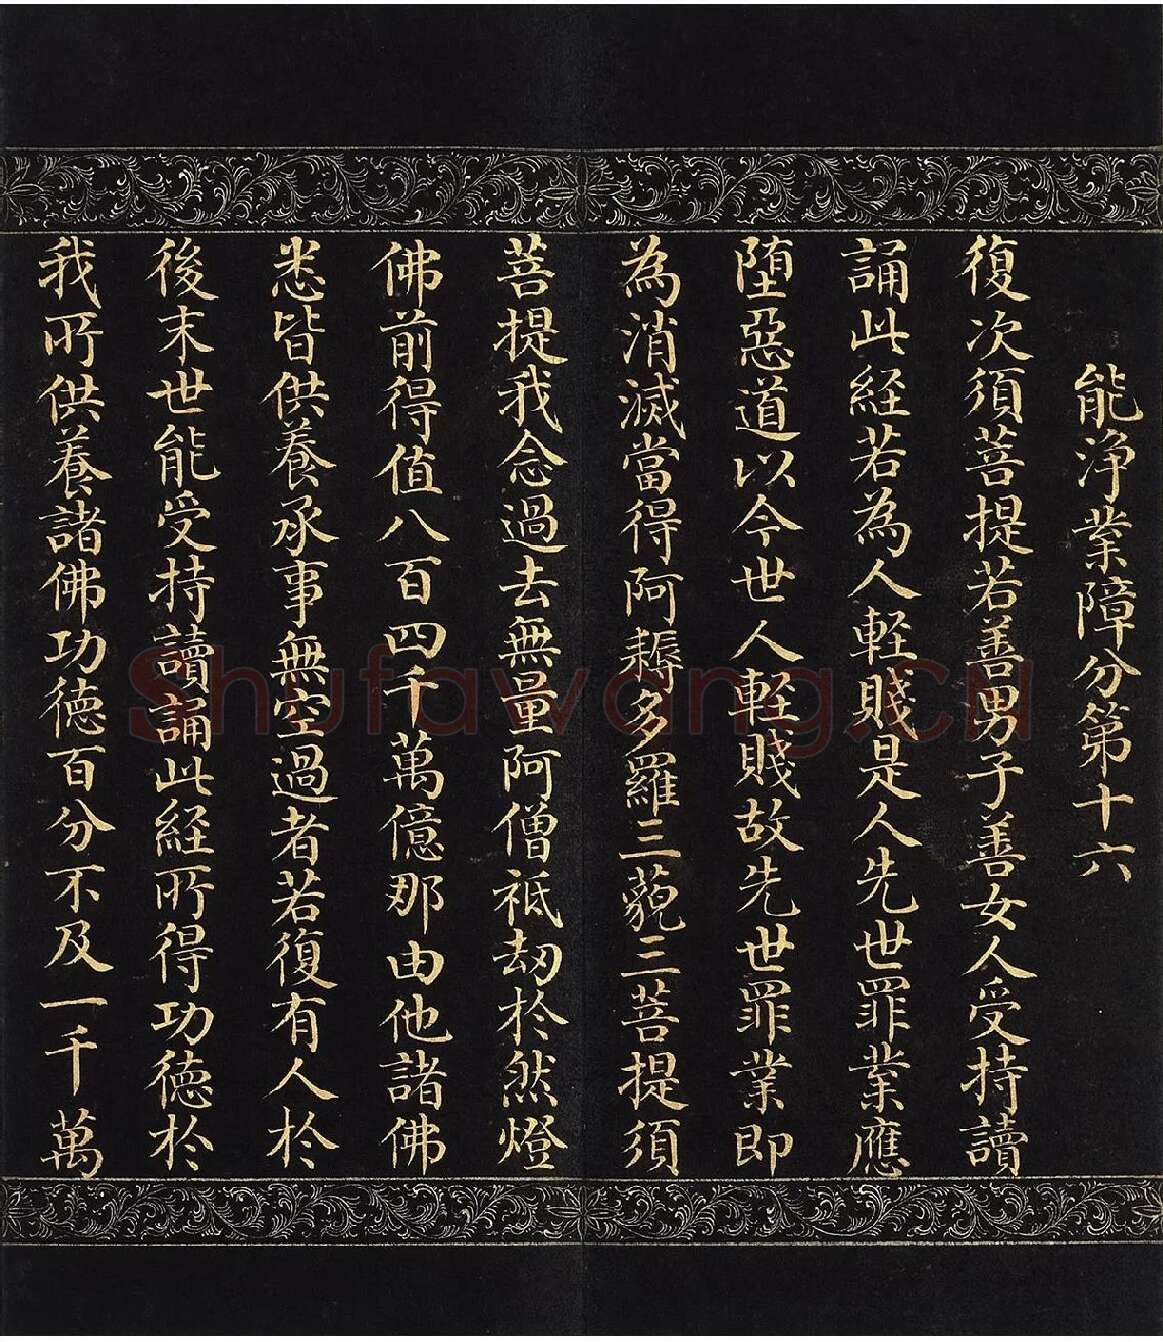 能淨業障分第十六
復次須菩提若善男子善女人受持讀
誦此経若為人輕賤是人先世罪業應
堕惡道以今世人輕賤故先世罪業即
為消滅當得阿耨多羅三藐三菩提須
菩提我念過去無量阿僧祇劫於然燈
佛前得值八百四千萬億那由他諸佛
悉皆供養承事無空過者若復有人於
後末世能受持讀誦此経所得功德於
我所供養諸佛功德百分不及一千萬
Shufawang.cn